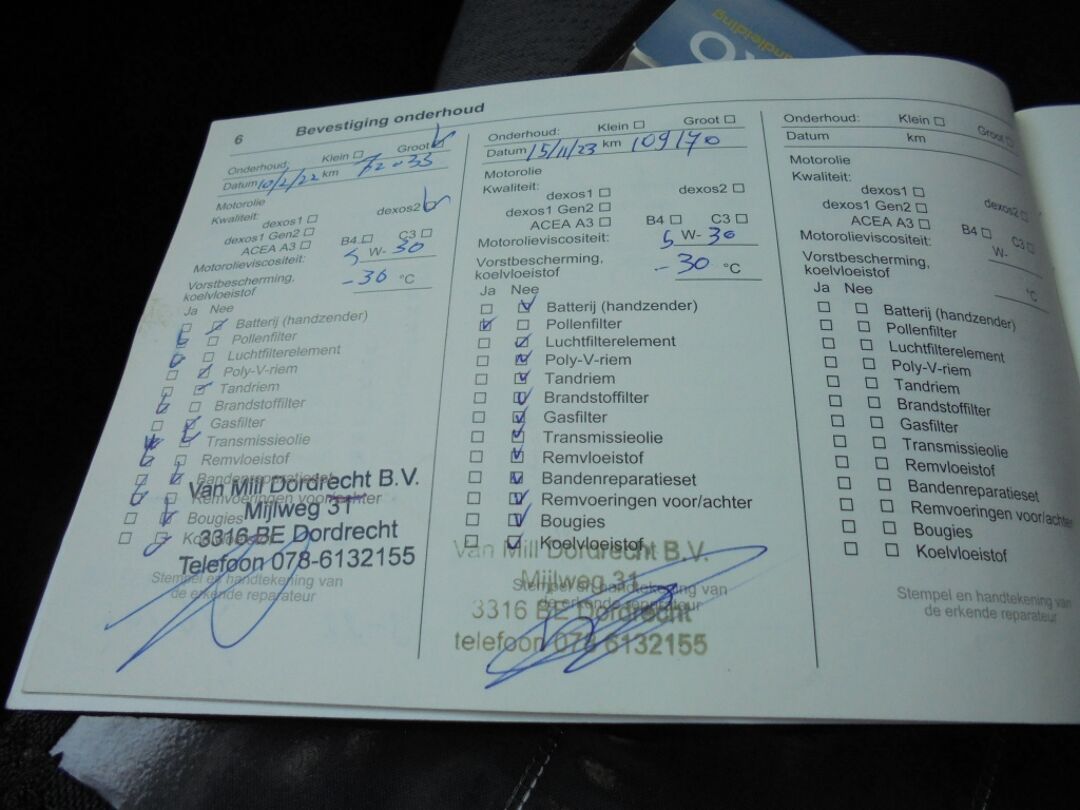 Handleiding
6 Bevestiging onderhoud
Onderhoud: Klein ☐ Groot ☑
Datum 10/2/22 km 72033
Motorolie
Kwaliteit:
dexos1 ☐ dexos2 ☑
dexos1 Gen2 ☐
ACEA A3 ☐ B4 ☐ C3 ☐
Motorolieviscositeit: 5 W- 30
Vorstbescherming,
koelvloeistof -36 °C
Ja Nee
Batterij (handzender)
Pollenfilter
Luchtfilterelement
Poly-V-riem
Tandriem
Brandstoffilter
Gasfilter
Transmissieolie
Remvloeistof
Bandenreparatieset
Remvoeringen voor/achter
Bougies
Koelvloeistof
Van Mill Dordrecht B.V.
Mijlweg 31
3316 BE Dordrecht
Telefoon 078-6132155
Stempel en handtekening van
de erkende reparateur
Onderhoud: Klein ☐ Groot ☐
Datum 15/11/23 km 109170
Motorolie
Kwaliteit:
dexos1 ☐ dexos2 ☐
dexos1 Gen2 ☐
ACEA A3 ☐ B4 ☐ C3 ☐
Motorolieviscositeit: 5 W- 30
Vorstbescherming,
koelvloeistof -30 °C
Ja Nee
Batterij (handzender)
Pollenfilter
Luchtfilterelement
Poly-V-riem
Tandriem
Brandstoffilter
Gasfilter
Transmissieolie
Remvloeistof
Bandenreparatieset
Remvoeringen voor/achter
Bougies
Koelvloeistof
Van Mill Dordrecht B.V.
Mijlweg 31
3316 BE Dordrecht
telefoon 078 6132155
Stempel en handtekening van
de erkende reparateur
Onderhoud: Klein ☐ Groot ☐
Datum km
Motorolie
Kwaliteit:
dexos1 ☐ dexos2 ☐
dexos1 Gen2 ☐
ACEA A3 ☐ B4 ☐ C3 ☐
Motorolieviscositeit: W-
Vorstbescherming,
koelvloeistof °C
Ja Nee
Batterij (handzender)
Pollenfilter
Luchtfilterelement
Poly-V-riem
Tandriem
Brandstoffilter
Gasfilter
Transmissieolie
Remvloeistof
Bandenreparatieset
Remvoeringen voor/achter
Bougies
Koelvloeistof
Stempel en handtekening van
de erkende reparateur